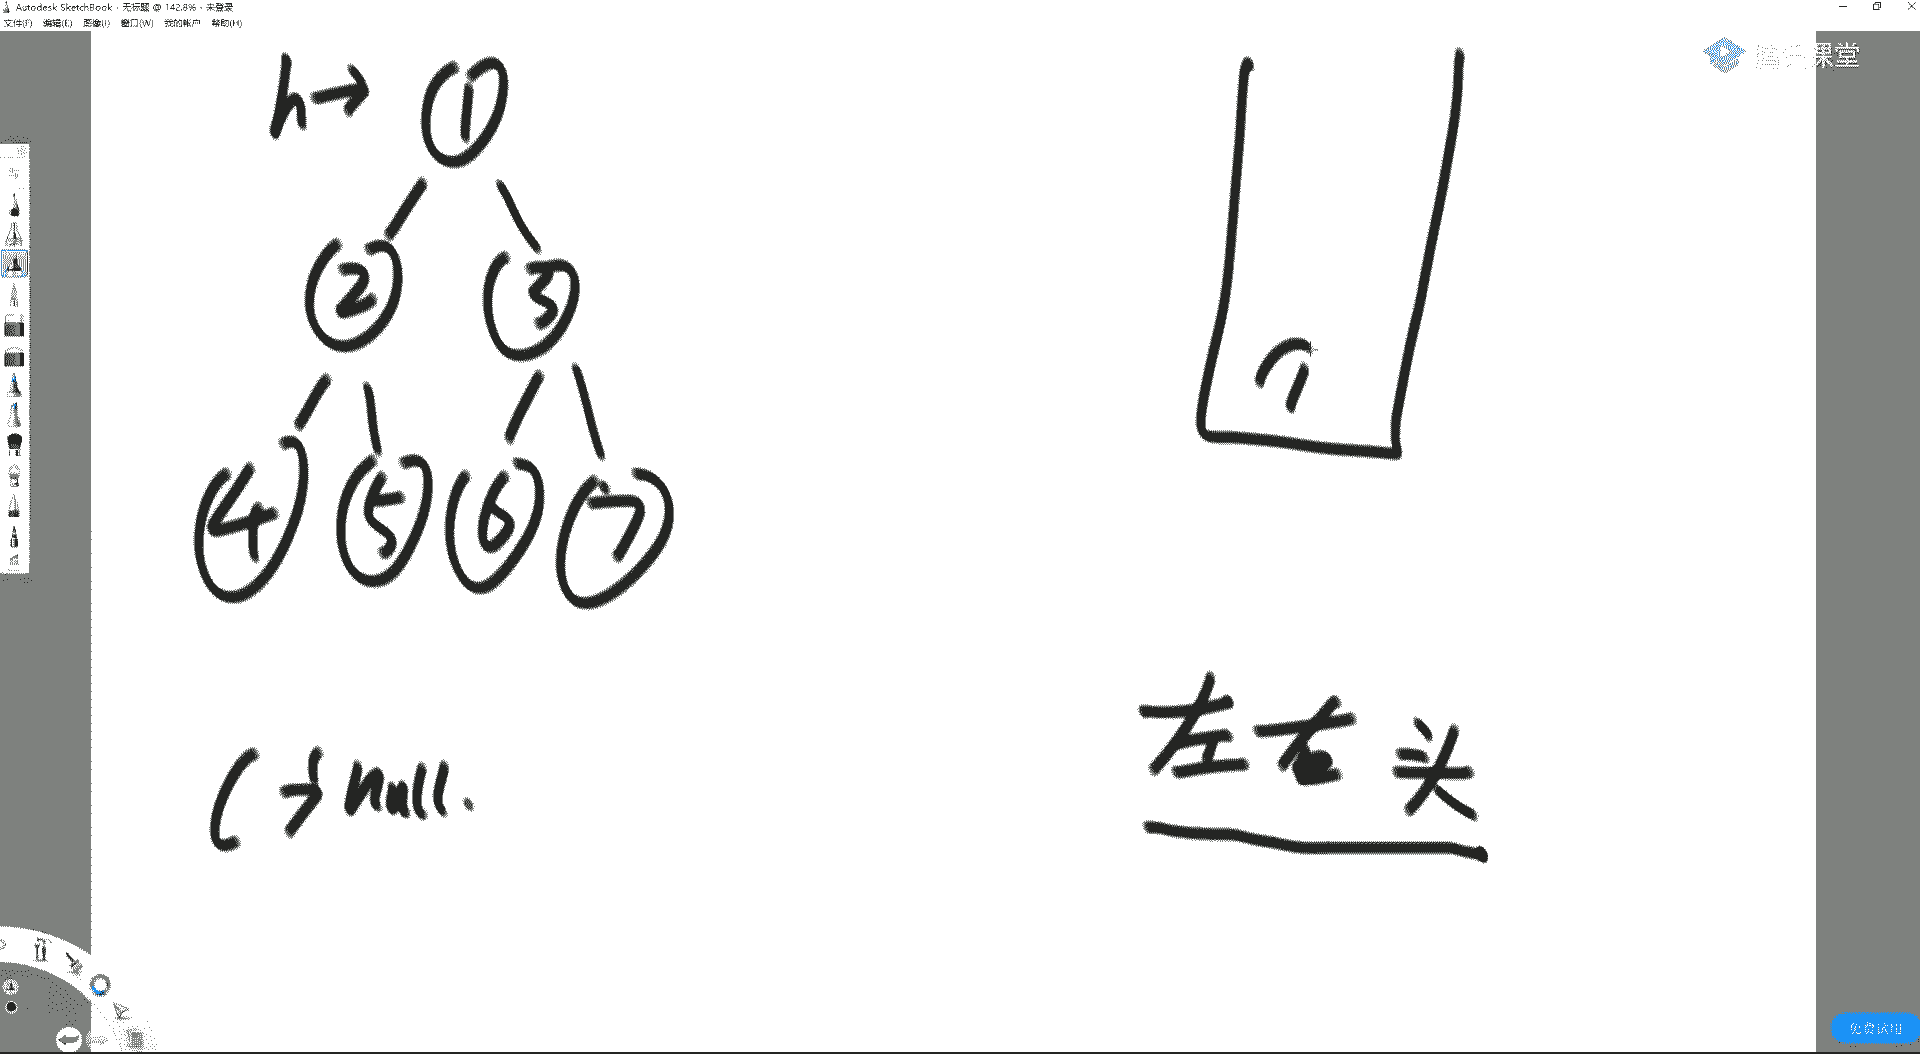 Autodesk SketchBook - 无标题 @ 142.8% - 未登录
文件(F) 编辑(E) 图像(I) 窗口(W) 我的帐户 帮助(H)
腾讯课堂
h→ 1
2 3
4 5 6 7
1
c → null.
左右头
免费试用